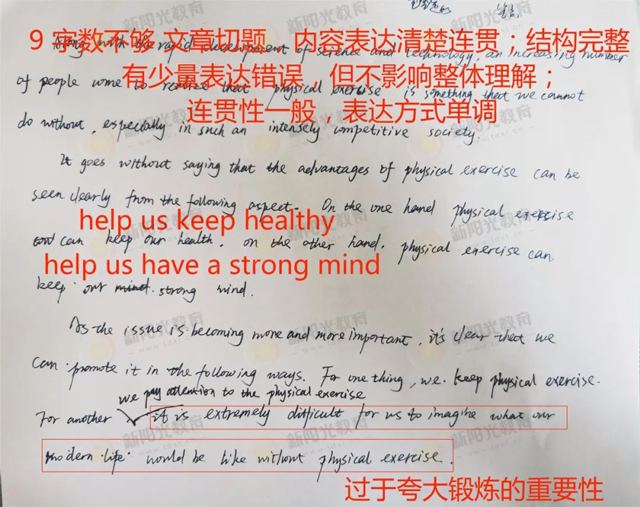 9 字数不够 文章切题，内容表达清楚连贯；结构完整
Along with the rapid development of science and technology, an increasing number
有少量表达错误，但不影响整体理解；
of people come to realize that physical exercise is something that we cannot
连贯性一般，表达方式单调
do without, especially in such an intensely competitive society.
It goes without saying that the advantages of physical exercise can be
seen clearly from the following aspect. On the one hand physical exercise
help us keep healthy
can keep our health. on the other hand, physical exercise can
help us have a strong mind
keep our strong mind.
As the issue is becoming more and more important, it's clear that we
can promote it in the following ways. For one thing, we keep physical exercise.
we pay attention to the physical exercise
For another it is extremely difficult for us to imagine what our
modern life would be like without physical exercise.
过于夸大锻炼的重要性
新阳光教育